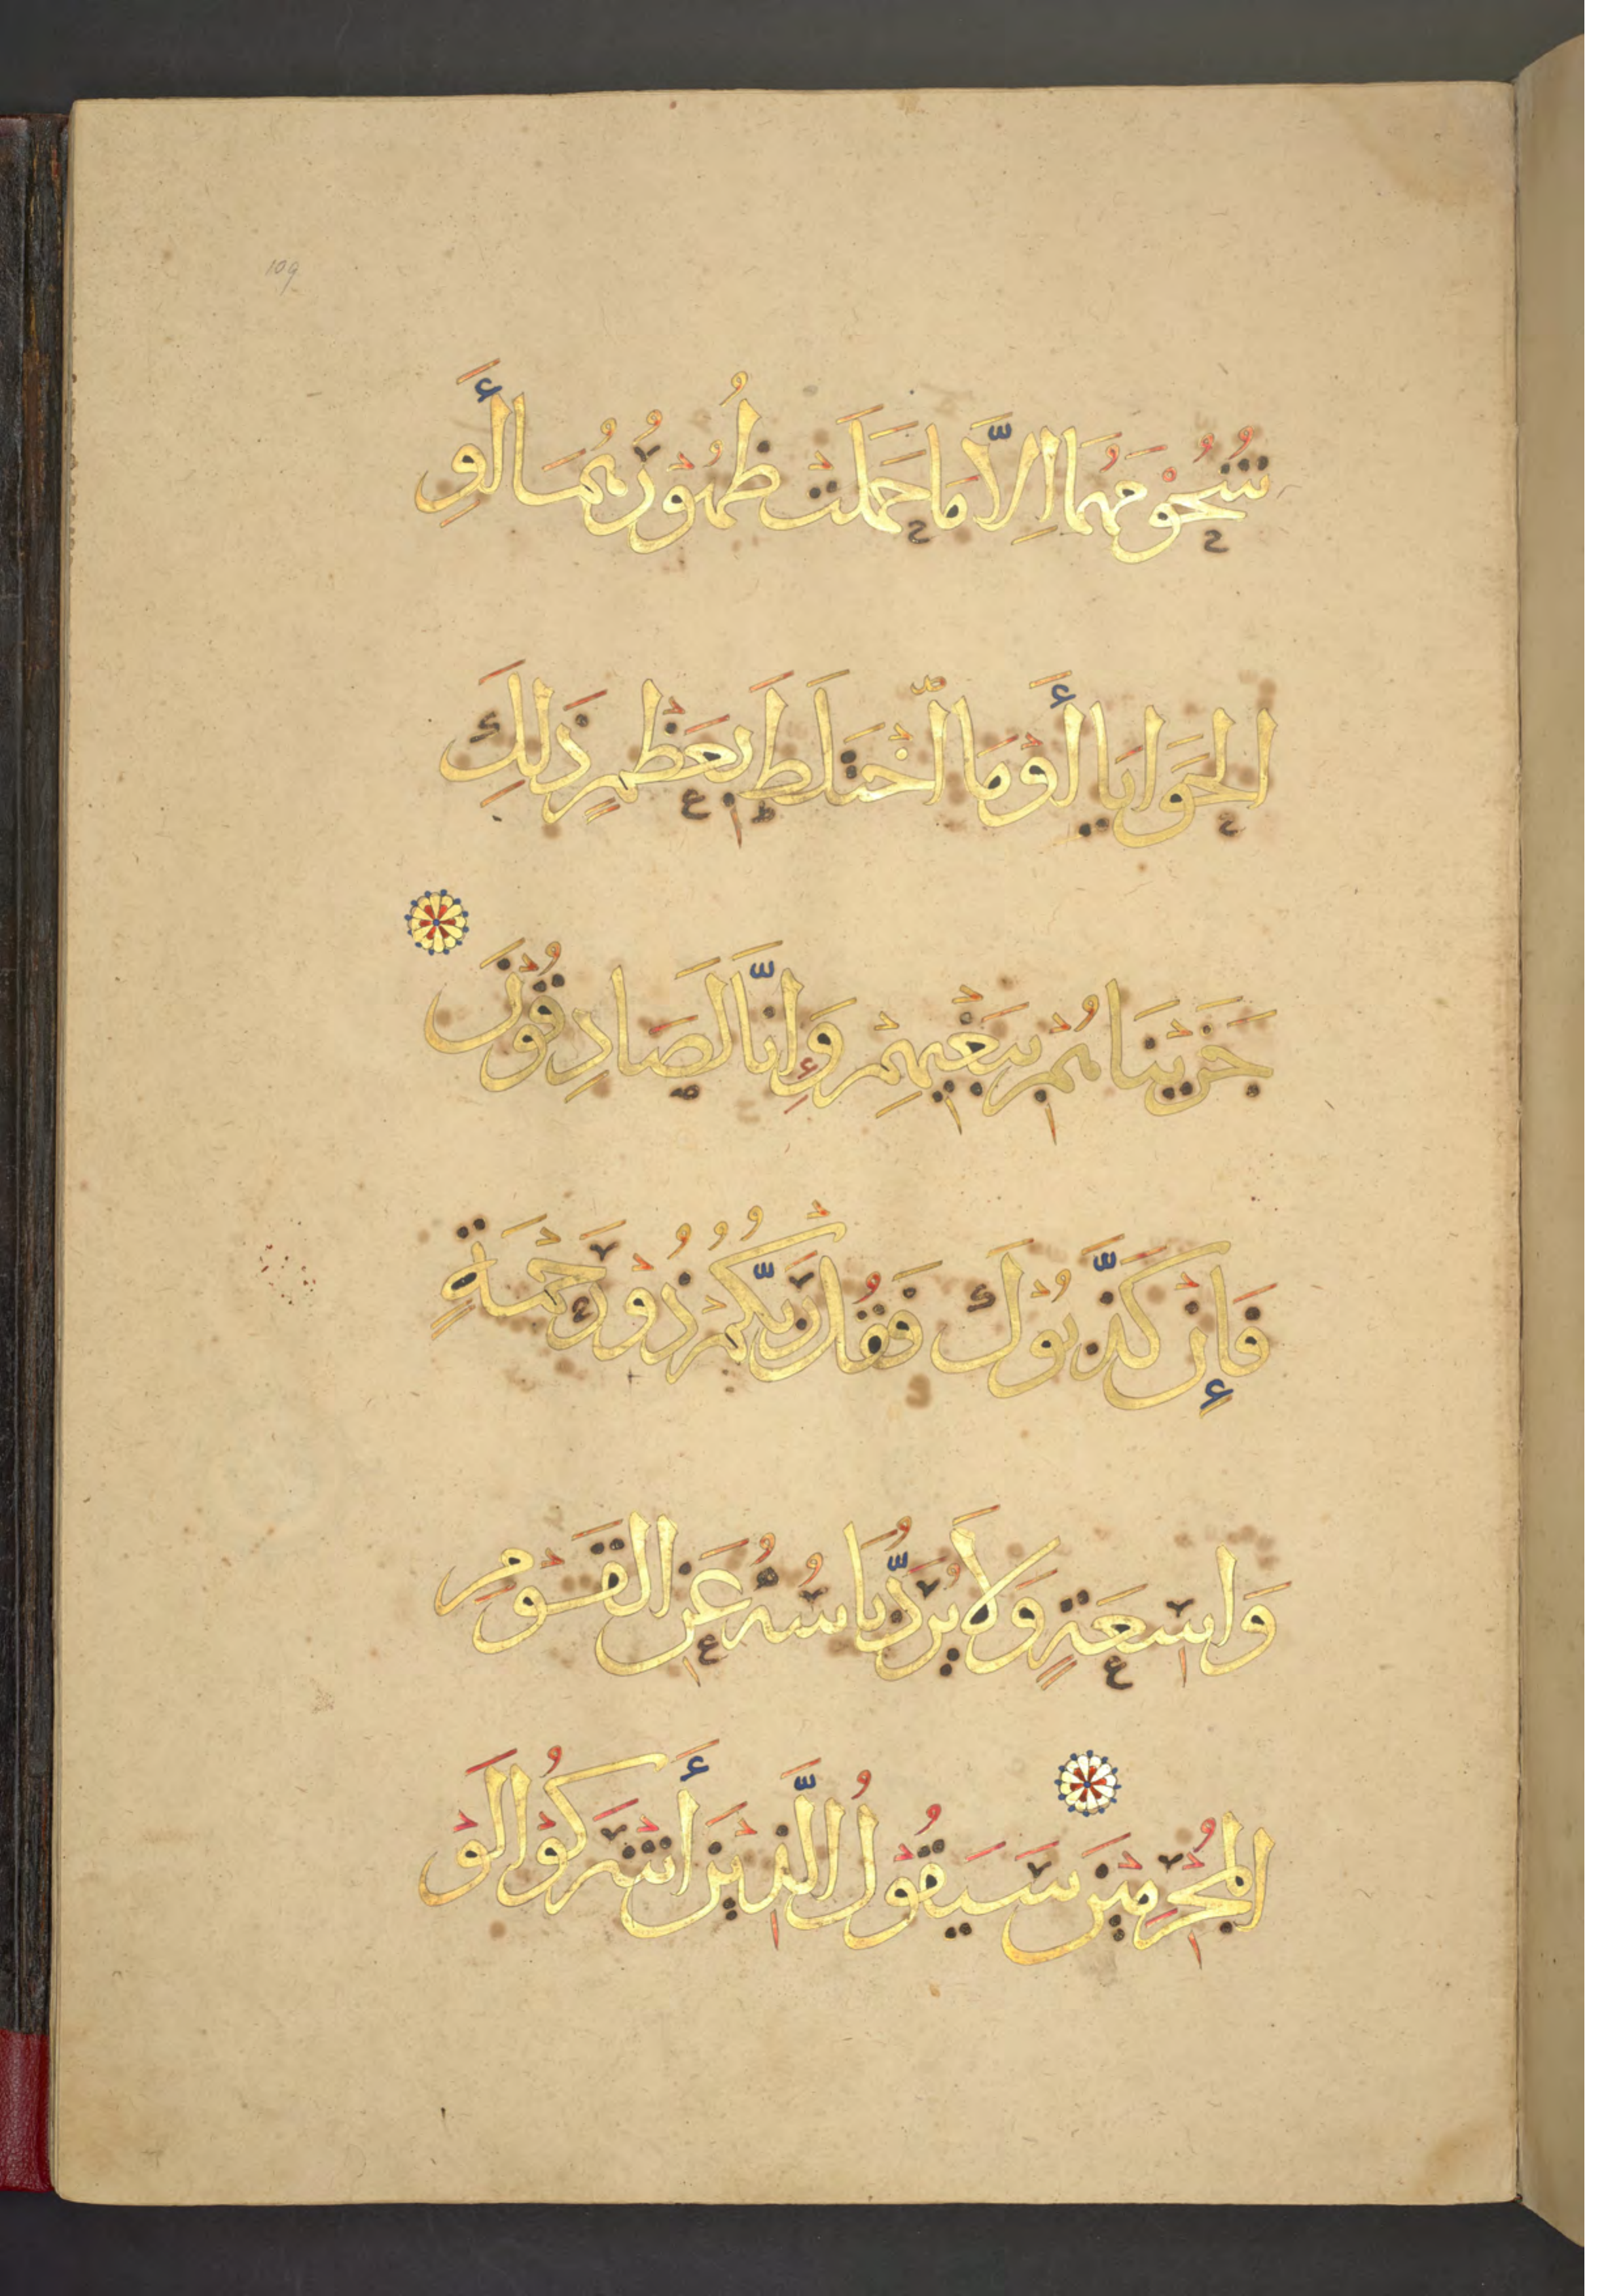 109
شُحُوْمَهُمَا اِلَّا مَا حَمَلَتْ ظُهُوْرُهُمَا أَوِ
الْحَوَايَا أَوْ مَا اخْتَلَطَ بِعَظْمٍ ذَلِكَ
جَزَيْنَاهُمْ بِبَغْيِهِمْ وَإِنَّا لَصَادِقُوْنَ
فَإِنْ كَذَّبُوْكَ فَقُلْ رَبُّكُمْ ذُوْ رَحْمَةٍ
وَاسِعَةٍ وَلَا يُرَدُّ بَاسُهُ عَنِ الْقَوْمِ
الْمُجْرِمِيْنَ سَيَقُوْلُ الَّذِيْنَ أَشْرَكُوْا لَوْ